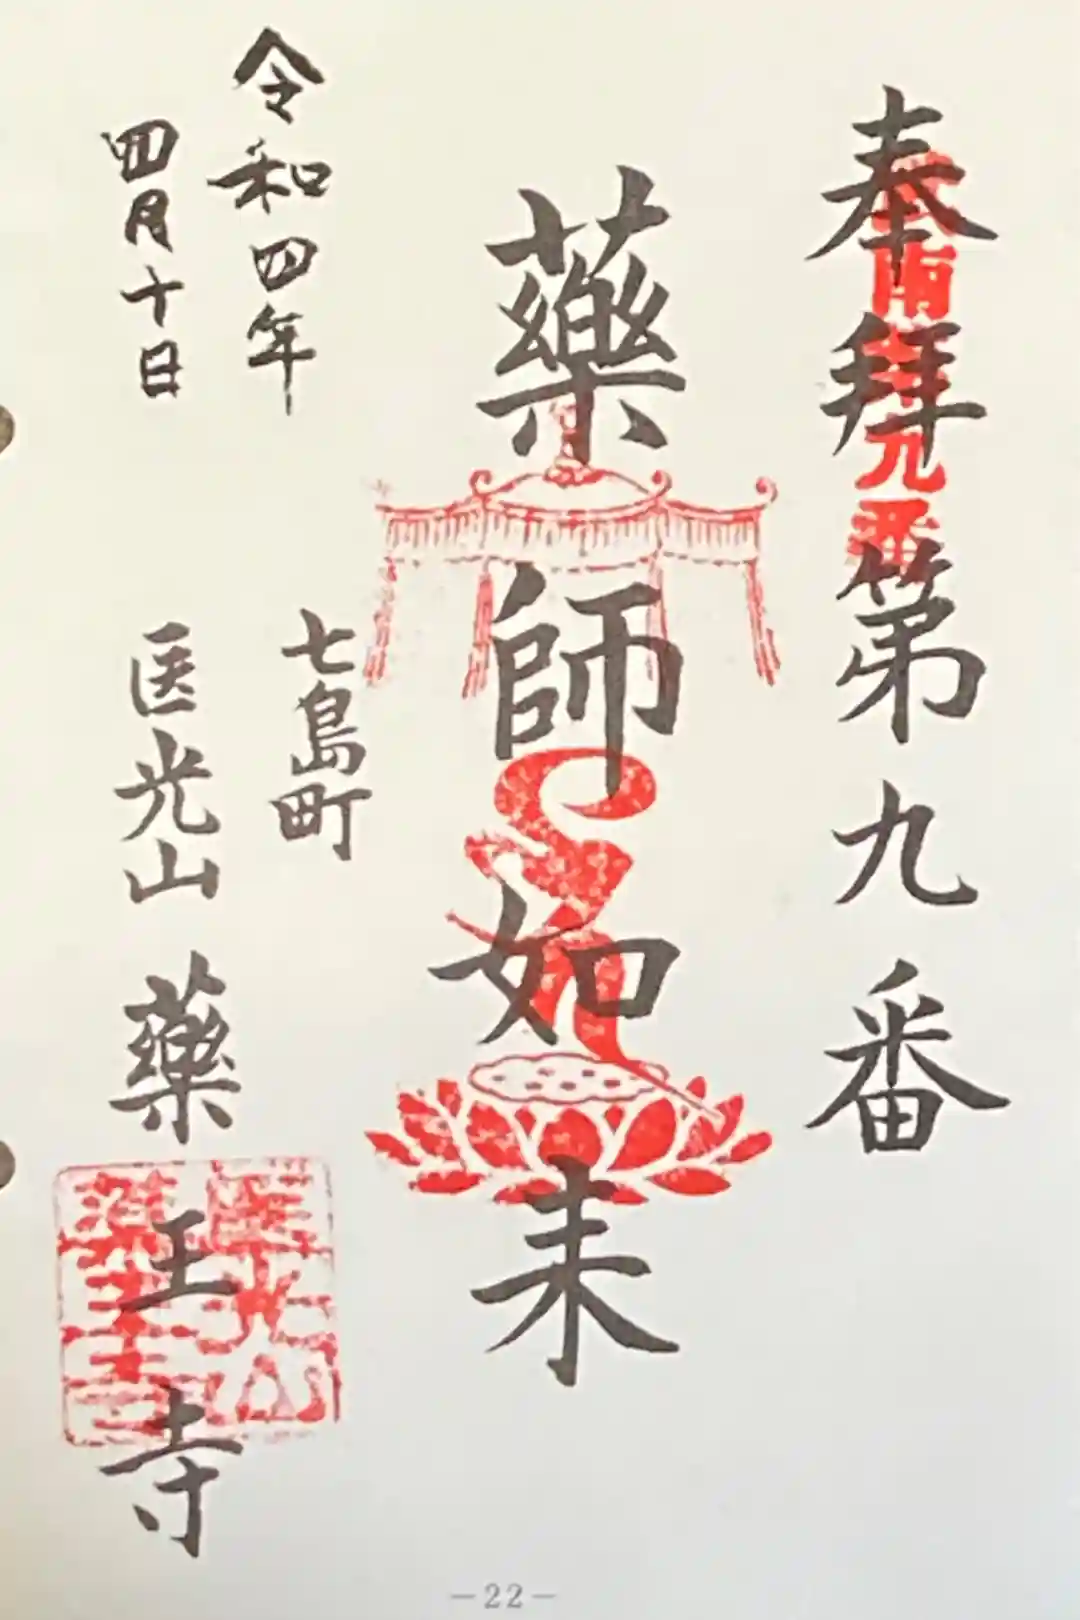 奉拜 第九番
藥師如来
令和四年
四月十日
七島町
医光山 藥王寺
九番
-22-